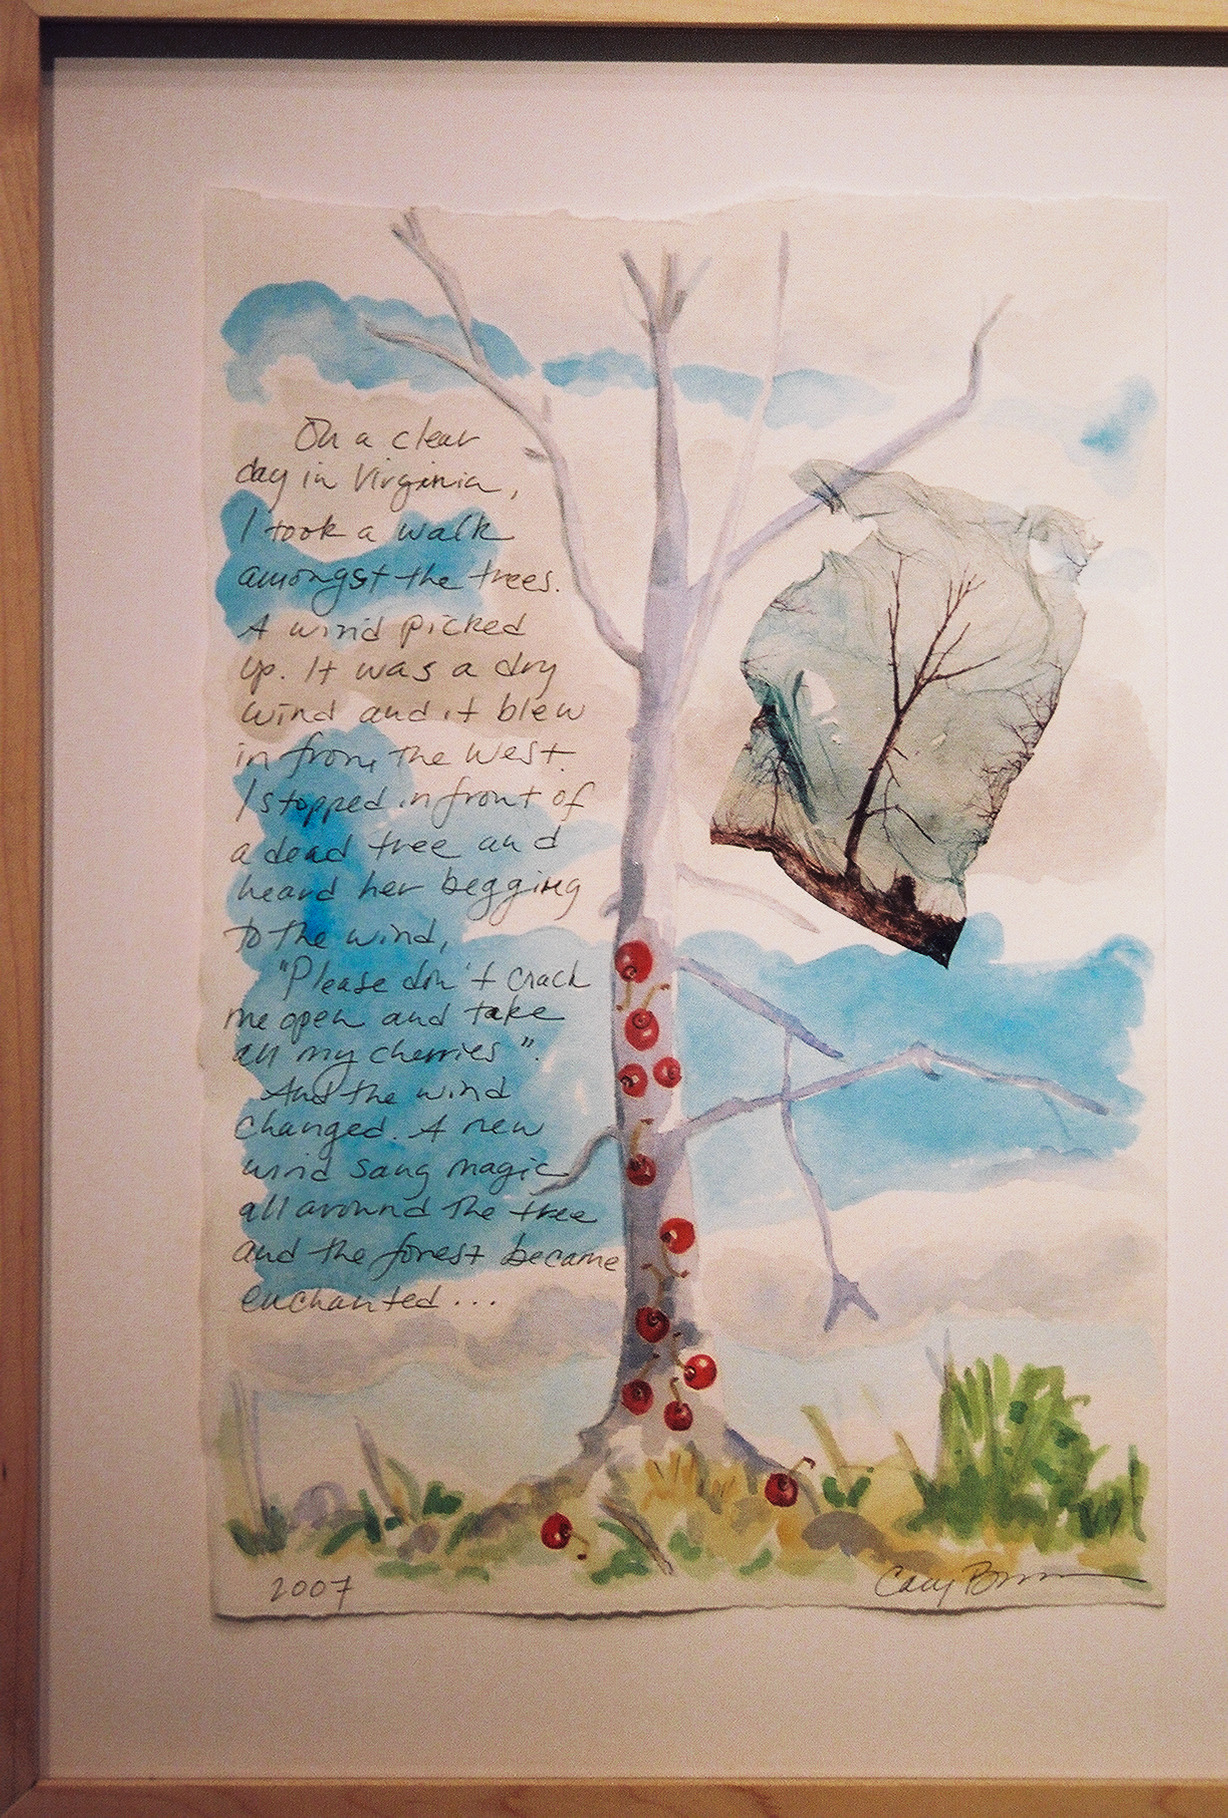 On a clear
day in Virginia,
I took a walk
amongst the trees.
A wind picked
up. It was a dry
wind and it blew
in from the West.
I stopped in front of
a dead tree and
heard her begging
to the wind,
"Please don't crack
me open and take
all my cherries".
And the wind
changed. A new
wind sang magic
all around the tree
and the forest became
enchanted...
2007
Cary